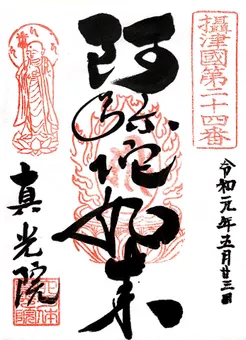 攝津國第二十四番
令和元年五月廿三日
阿弥陀如来
真光院